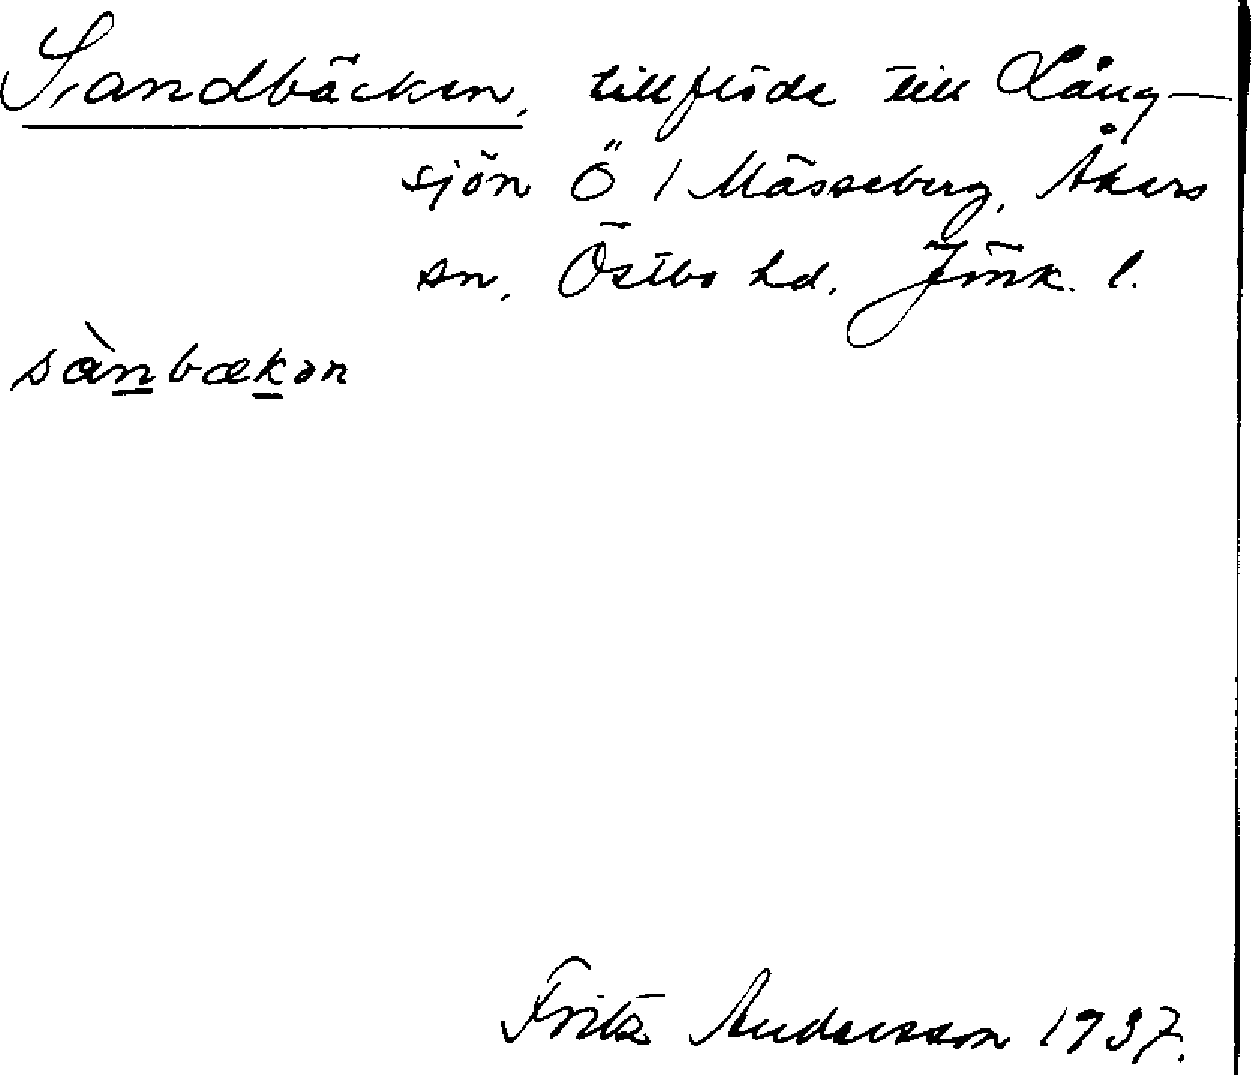 Sandbäcken, tillflöde till Lång-
sjön Ö / Mässeberg, Åkers
sn, Östbo hd. Jönk. l.
sànbækən
Fritz Andersson 1937.